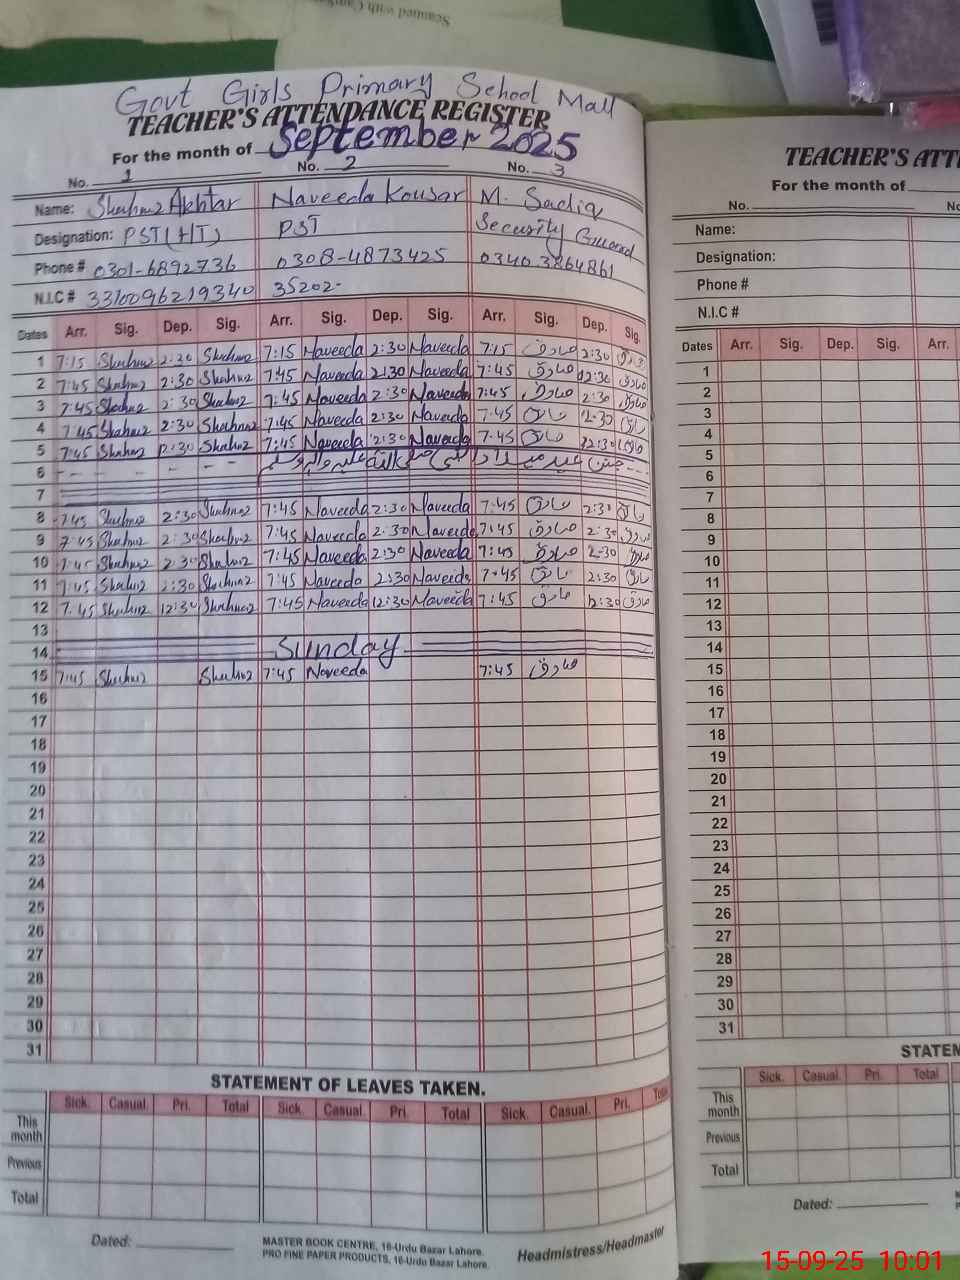 Govt Girls Primary School Mall
TEACHER'S ATTENDANCE REGISTER
For the month of September 2025
No. 1 No. 2 No. 3
Name: Shahnaz Akhtar Naveeda Kousar M. Sadiq
Designation: PST(HT) PST Security Guard
Phone # 0301-6892736 0308-4873425 03403864861
N.I.C # 3310096219340 35202-
Dates Arr. Sig. Dep. Sig. Arr. Sig. Dep. Sig. Arr. Sig. Dep. Sig.
1 7:15 Shahnaz 2:30 Shahnaz 7:15 Naveeda 2:30 Naveeda 7:15 صادق 2:30 صادق
2 7:45 Shahnaz 2:30 Shahnaz 7:45 Naveeda 2:30 Naveeda 7:45 صادق 2:30 صادق
3 7:45 Shahnaz 2:30 Shahnaz 7:45 Naveeda 2:30 Naveeda 7:45 صادق 2:30 صادق
4 7:45 Shahnaz 2:30 Shahnaz 7:45 Naveeda 2:30 Naveeda 7:45 صادق 2:30 صادق
5 7:45 Shahnaz 12:30 Shahnaz 7:45 Naveeda 12:30 Naveeda 7:45 صادق 12:30 صادق
6 جشن عید میلاد النبی صلی اللہ علیہ والہ وسلم
7
8 7:45 Shahnaz 2:30 Shahnaz 7:45 Naveeda 2:30 Naveeda 7:45 صادق 2:30 صادق
9 7:45 Shahnaz 2:30 Shahnaz 7:45 Naveeda 2:30 Naveeda 7:45 صادق 2:30 صادق
10 7:45 Shahnaz 2:30 Shahnaz 7:45 Naveeda 2:30 Naveeda 7:45 صادق 2:30 صادق
11 7:45 Shahnaz 2:30 Shahnaz 7:45 Naveeda 2:30 Naveeda 7:45 صادق 2:30 صادق
12 7:45 Shahnaz 12:30 Shahnaz 7:45 Naveeda 12:30 Naveeda 7:45 صادق 12:30 صادق
13
14 Sunday
15 7:45 Shahnaz Shahnaz 7:45 Naveeda 7:45 صادق
16
17
18
19
20
21
22
23
24
25
26
27
28
29
30
31
STATEMENT OF LEAVES TAKEN.
Sick. Casual. Pri. Total Sick. Casual. Pri. Total Sick. Casual. Pri. Total
This month
Previous
Total
Dated:
MASTER BOOK CENTRE, 16-Urdu Bazar Lahore.
PRO FINE PAPER PRODUCTS, 16-Urdu Bazar Lahore.
Headmistress/Headmaster
TEACHER'S
For the month of
No.
Name:
Designation:
Phone #
N.I.C #
Dates Arr. Sig. Dep. Sig. Arr.
1
2
3
4
5
6
7
8
9
10
11
12
13
14
15
16
17
18
19
20
21
22
23
24
25
26
27
28
29
30
31
Sick. Casual. Pri. Total
This month
Previous
Total
Dated:
15-09-25 10:01